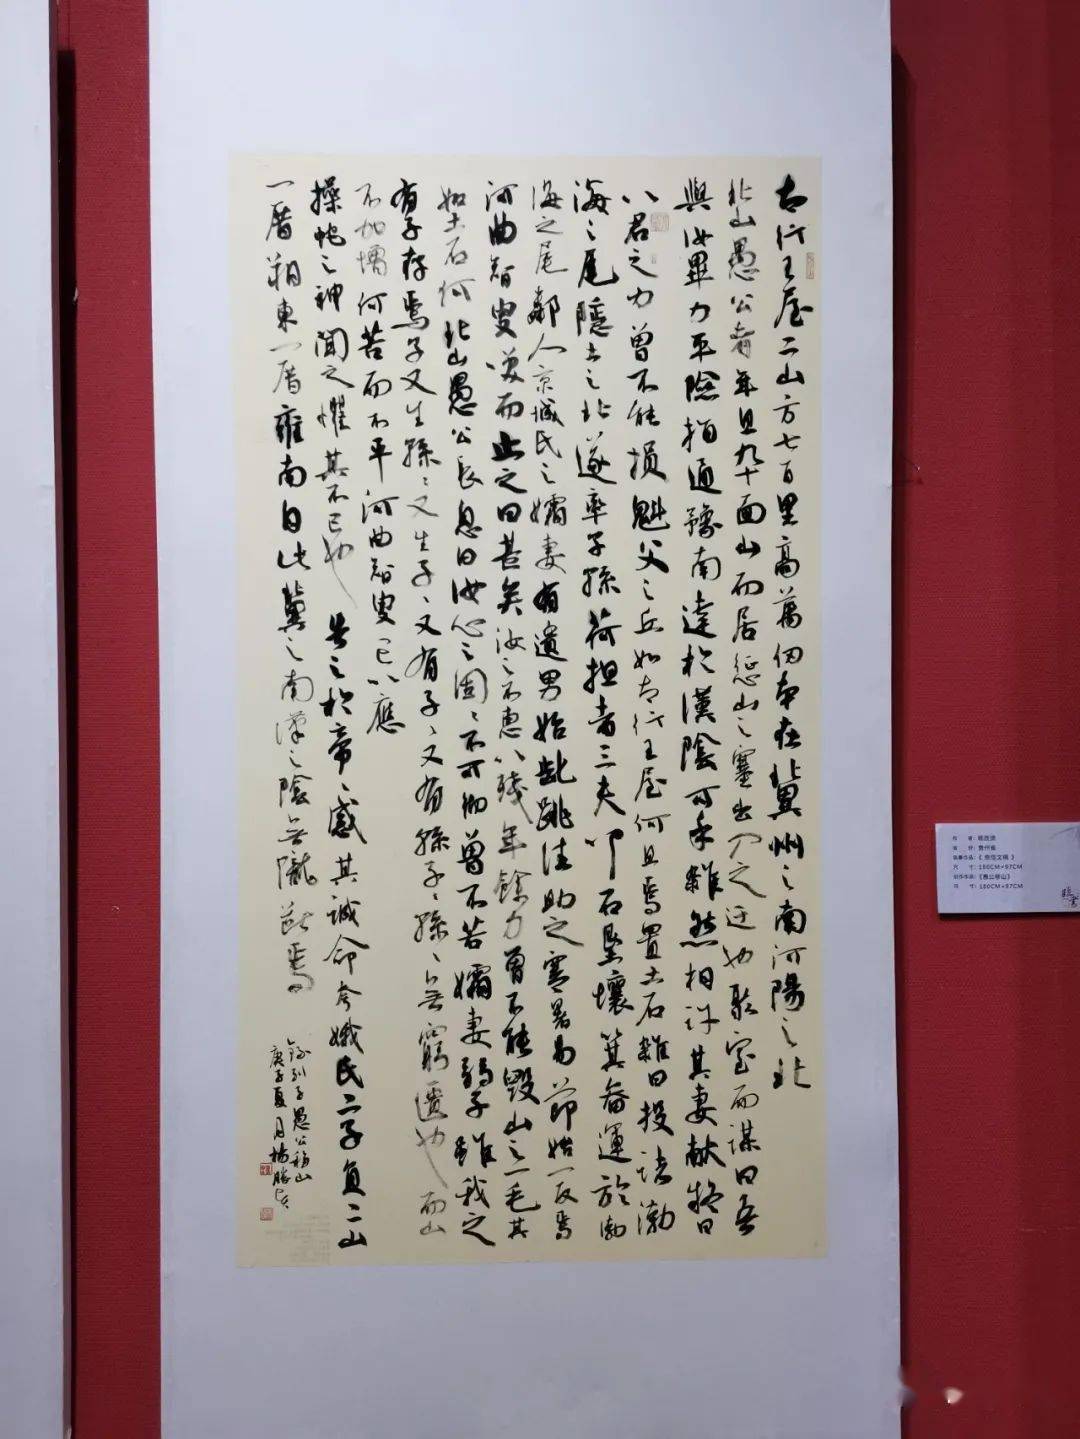 太行王屋二山方七百里高萬仞本在冀州之南河陽之北
北山愚公者年且九十面山而居懲山之塞出入之迂也聚室而謀曰吾
與汝畢力平險指通豫南達於漢陰可乎雜然相許其妻獻疑曰
以君之力曾不能損魁父之丘如太行王屋何且焉置土石雜曰投諸渤
海之尾隱土之北遂率子孫荷擔者三夫叩石墾壤箕畚運於渤
海之尾鄰人京城氏之孀妻有遺男始齔跳往助之寒暑易節始一反焉
河曲智叟笑而止之曰甚矣汝之不惠以殘年餘力曾不能毀山之一毛其
如土石何北山愚公長息曰汝心之固〻不可徹曾不若孀妻弱子雖我之
有子存焉子又生孫〻又生子〻又有子〻又有孫子〻孫〻無窮匱也而山
不加增何苦而不平河曲智叟亡以應
操蛇之神聞之懼其不已也告之於帝〻感其誠命夸娥氏二子負二山
一厝朔東一厝雍南自此冀之南漢之陰無隴斷焉
錄列子愚公移山
庚子夏月楊勝
尺　寸：180CM×97CM
創作作品：《愚公移山》
尺　寸：180CM×97CM